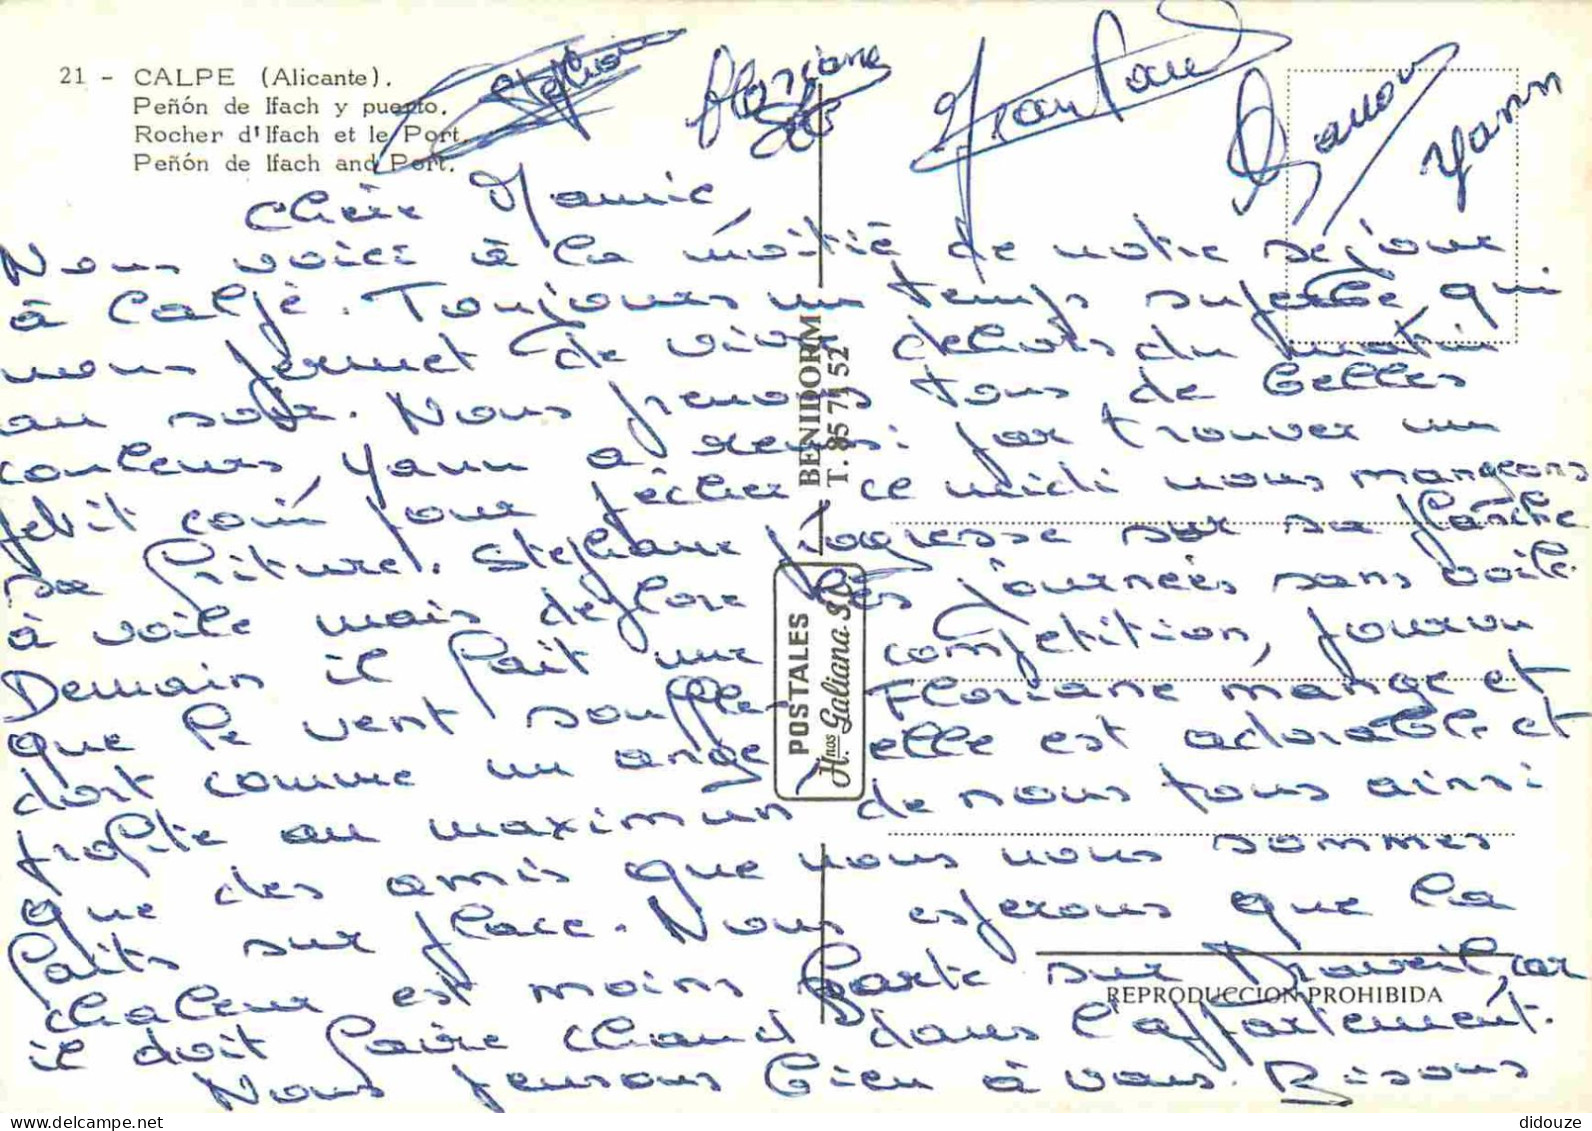 21 - CALPE (Alicante).
Peñón de Ifach y puerto.
Rocher d'Ifach et le Port.
Peñón de Ifach and Port.
Stéphane
Floriane
Jean Paul
Yann
Chère Mamie,
Nous voici à la moitié de notre séjour
à Calpé. Toujours un temps superbe qui
nous permet de vivre dehors du matin
au soir. Nous prenons tous de belles
couleurs, Yann a réussi par trouver un
petit coin pour pêcher ce midi nous mangeons
sa friture!. Stéphane progresse sur sa planche
à voile mais déplore les journées sans voile.
Demain il fait une compétition, pourvu
que le vent souffle. Floriane mange et
dort comme un ange elle est adorable et
profite au maximum de nous tous ainsi
que des amis que nous nous sommes
faits sur place. Nous espérons que la
chaleur est moins forte sur Draveil, car
il doit faire chaud dans l'appartement.
Nous pensons bien à vous. Bisous
BENIDORM
T. 85 71 52
POSTALES
Hnos Galiana S.
REPRODUCCION PROHIBIDA
didouze